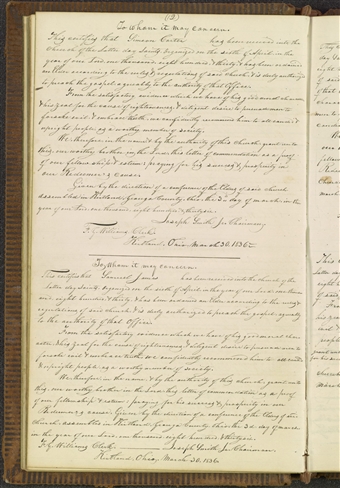 (2)
To whom it may concern
This certifies that Simeon Carter has been received into the
church of the Latter day Saints organized on the sixth of April in the
year of our Lord, one thousand eight hundred & thirty & has been ordained
an Elder according to the rules & regulations of said church & is duly authorized
to preach the gospel agreeably to the authority of that office
From the satisfactory evidence which we have of his good moral character
& his zeal for the cause of righteousness & diligent desire to persuade men to
forsake evil & embrace truth we confidently recommend him to all candid &
upright people as a worthy member of society.
We therefore in the name & by the authority of this church grant unto
this our worthy brother in the Lord this letter of commendation as a proof
of our fellowship & esteem: praying for his success & prosperity in
our Redeemer's cause
Given by the direction of a conference of the Elders of said church
assembled in Kirtland, Geauga County, Ohio, the 3d day of March in the
year of our Lord, one thousand eight hundred & thirty six.
Joseph Smith Jr. Chairman
F. G. Williams, Clerk
Kirtland, Ohio, March 30, 1836
To whom it may concern
This certifies that Samuel James has been received into the church of the
Latter day Saints organized on the sixth of April in the year of our Lord one thousand
eight hundred & thirty & has been ordained an Elder according to the rules &
regulations of said church & is duly authorized to preach the gospel agreeably
to the authority of that office
From the satisfactory evidence which we have of his good moral char-
acter & his zeal for the cause of righteousness & diligent desire to persuade men to
forsake evil & embrace truth we confidently recommend him to all candid
& upright people as a worthy member of society.
We therefore in the name & by the authority of this church, grant unto
this our worthy brother in the Lord this letter of commendation as a proof
of our fellowship & esteem: praying for his success & prosperity in our
Redeemer's cause. Given by the direction of a conference of the Elders of said
church assembled in Kirtland, Geauga County, Ohio the 3d day of March
in the year of our Lord, one thousand eight hundred & thirty six
F. G. Williams Clerk Joseph Smith Jr. Chairman
Kirtland, Ohio, March 30, 1836